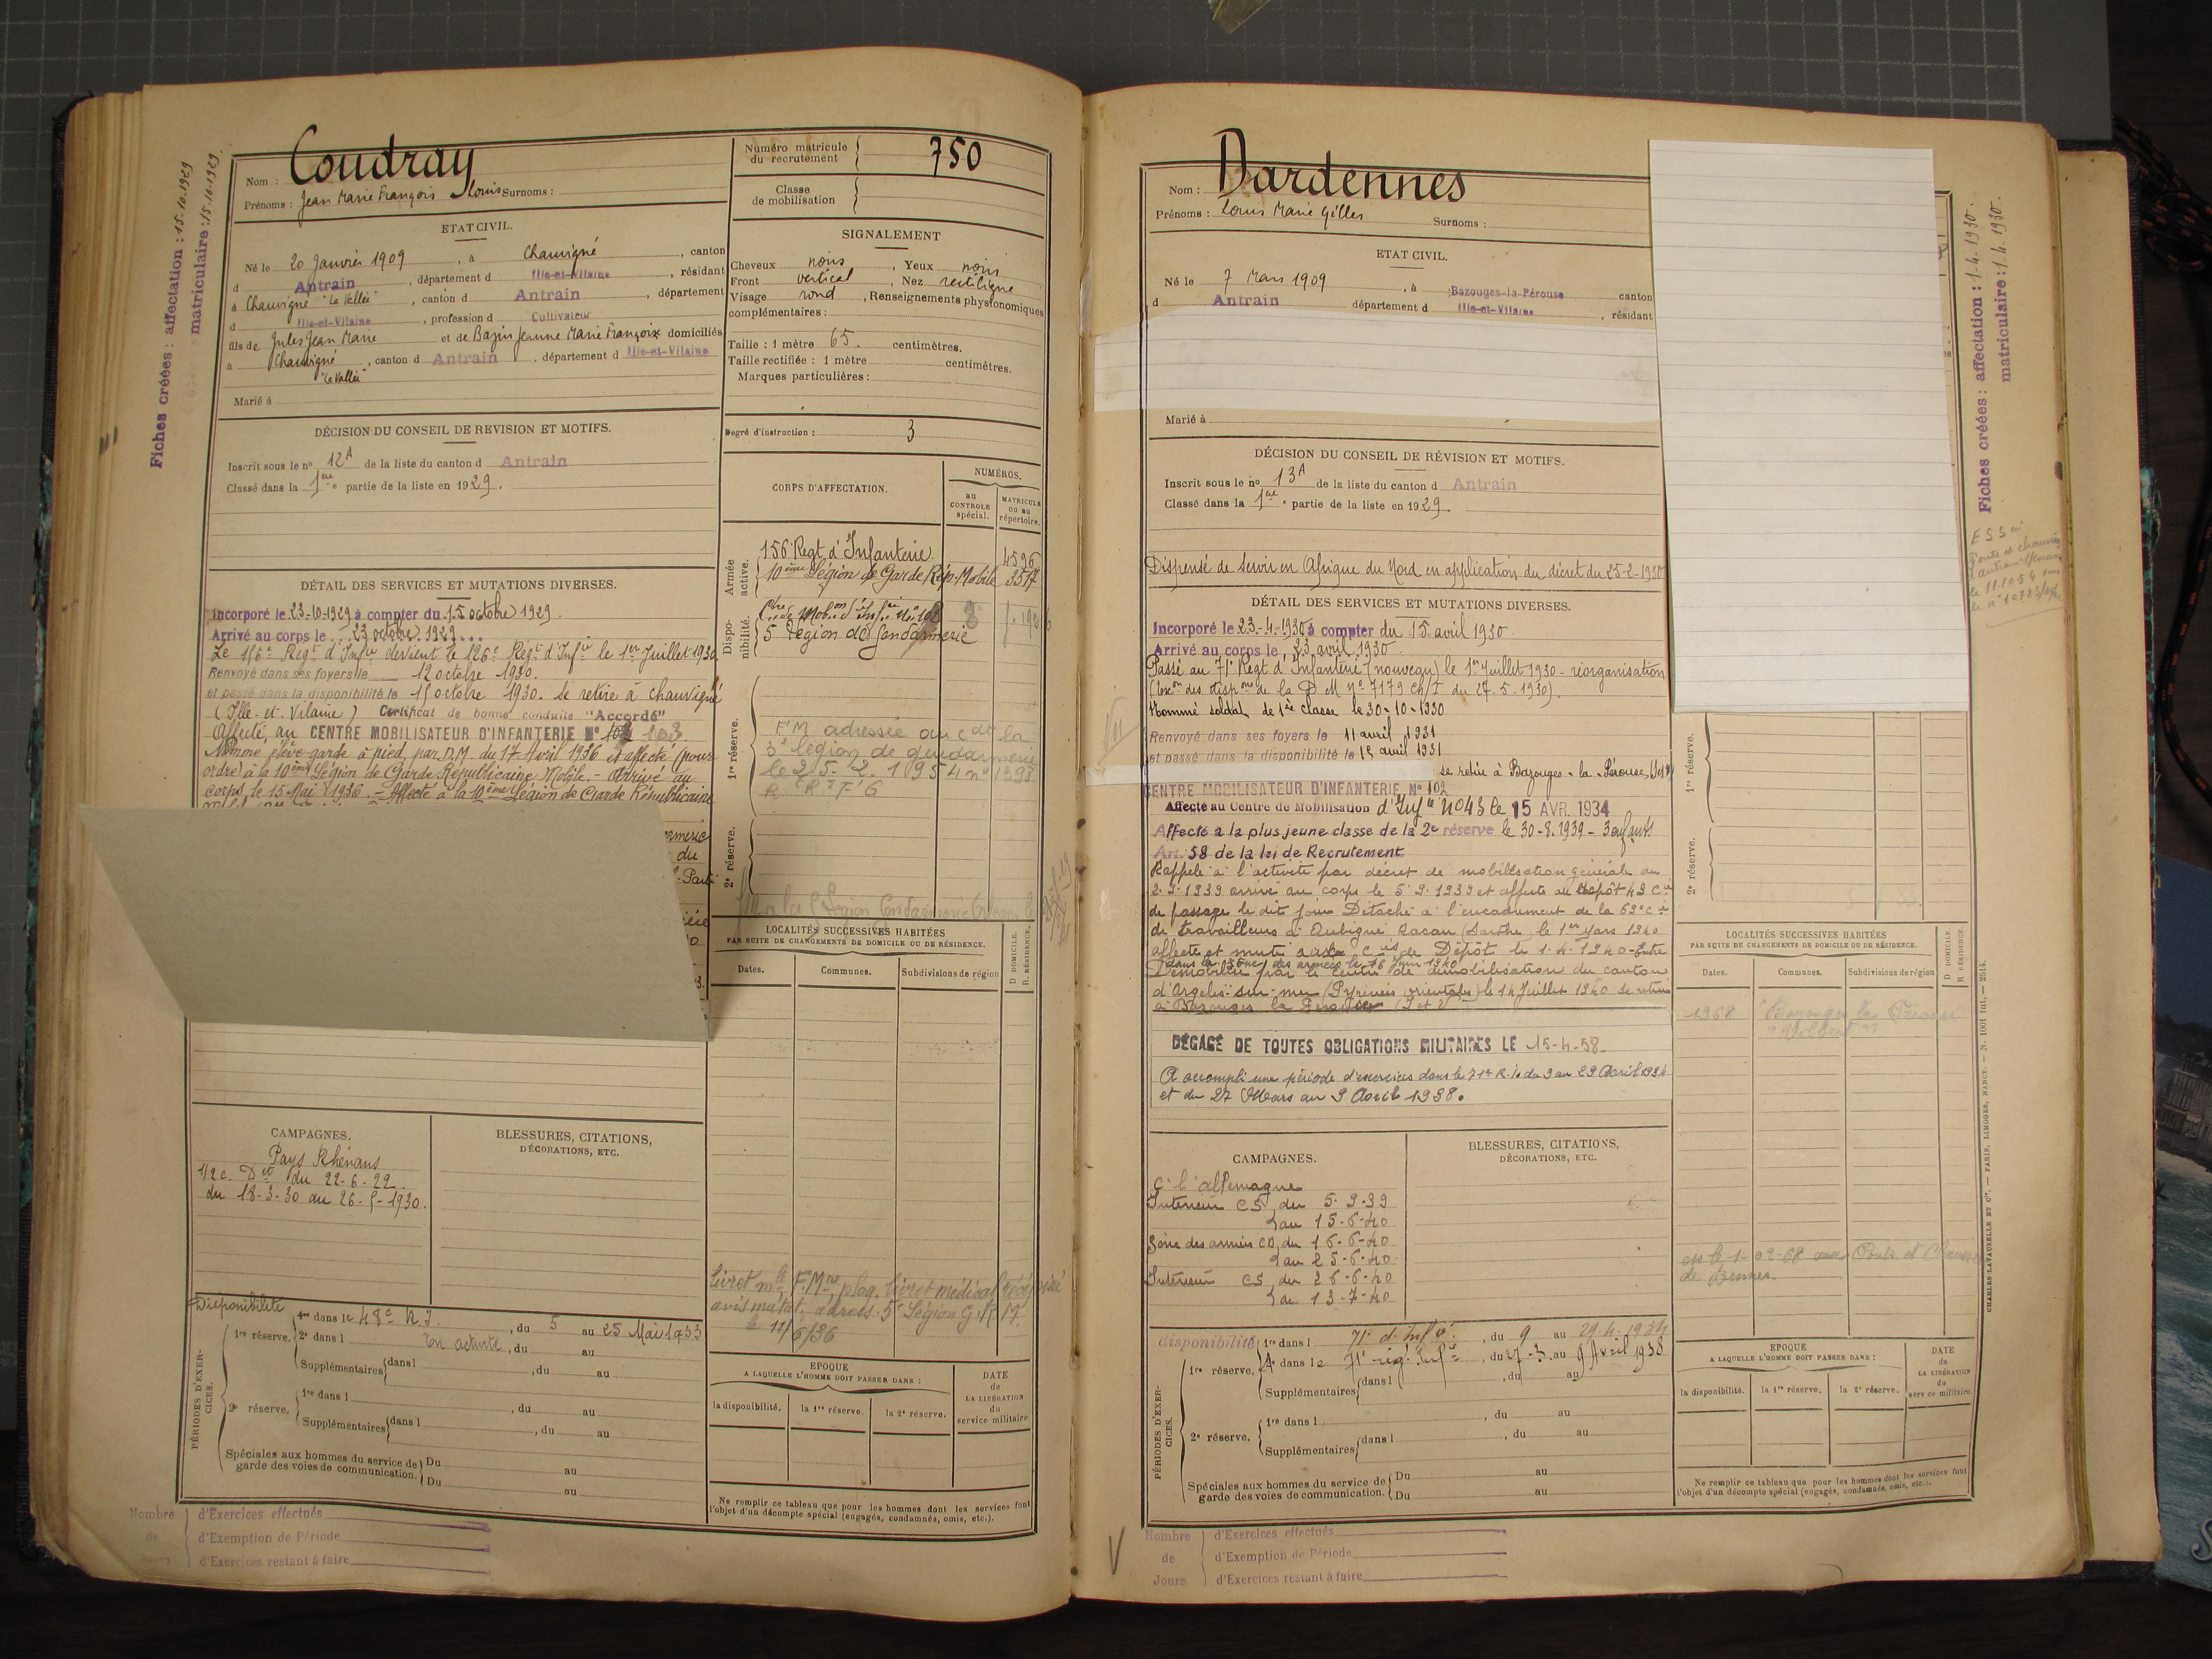 Fiches créées : affectation : 15.10.1929
matriculaire : 15.10.1929.
Nom : Coudray
Prénoms : Jean Marie François Louis Surnoms :
Numéro matricule du recrutement 750
Classe de mobilisation
ETAT CIVIL.
Né le 20 Janvier 1909, à Chauvigné, canton
d Antrain, département d Ille-et-Vilaine, résidant
à Chauvigné "La Vallée", canton d Antrain, département
d Ille-et-Vilaine, profession d Cultivateur
fils de Jules Jean Marie et de Bazin Jeanne Marie Françoise domiciliés
à Chauvigné, canton d Antrain, département d Ille-et-Vilaine
"La Vallée"
Marié à
SIGNALEMENT
Cheveux noirs, Yeux noirs
Front vertical, Nez rectiligne
Visage rond, Renseignements physionomiques
complémentaires :
Taille : 1 mètre 65. centimètres.
Taille rectifiée : 1 mètre centimètres.
Marques particulières :
Degré d'instruction : 3
DÉCISION DU CONSEIL DE REVISION ET MOTIFS.
Inscrit sous le no 12A de la liste du canton d Antrain
Classé dans la 1ère partie de la liste en 1929.
CORPS D'AFFECTATION.
NUMÉROS.
au CONTROLE spécial.
MATRICULE ou au répertoire.
Armée active.
156 Regt d'Infanterie 4596
10ème Légion de Garde Rép. Mobile 3517
Disponibilité.
Ctre de Mobon d'Infie No 102
5 Légion de Gendarmerie
1re réserve.
FM adressée au Cdt la
3e légion de gendarmerie
le 25-2-1954 no 1398
2e réserve.
DÉTAIL DES SERVICES ET MUTATIONS DIVERSES.
Incorporé le 23-10-1929 à compter du 15 octobre 1929.
Arrivé au corps le 23 octobre 1929
Le 156e Regt d'Infie devient le 126e Regt d'Infie le 1er Juillet 1930
Renvoyé dans ses foyers le 12 octobre 1930.
et passé dans la disponibilité le 15 octobre 1930. Se retire à Chauvigné
(Ille-et-Vilaine) Certificat de bonne conduite "Accordé"
Affecté au CENTRE MOBILISATEUR D'INFANTERIE N° 102 103
Nommé élève-garde à pied, par D.M. du 17 Avril 1936 et affecté (pour
ordre) à la 10ème Légion de Garde Républicaine Mobile.- Arrivé au
corps, le 15 Mai 1936.- Affecté à la 10ème Légion de Garde Républicaine
LOCALITÉS SUCCESSIVES HABITÉES
PAR SUITE DE CHANGEMENTS DE DOMICILE OU DE RÉSIDENCE.
Dates. Communes. Subdivisions de région D DOMICILE. R. RÉSIDENCE.
CAMPAGNES.
Pays Rhénans
1/2 c. Dct du 22-6-22.
du 18-3-30 au 26-5-1930.
BLESSURES, CITATIONS,
DÉCORATIONS, ETC.
Livret mle F.Mre, plaq. livret médical
avis mutat. adress. 5e Légion G.R.M.
le 11/6/36
PÉRIODES D'EXERCICES.
Disponibilité
1re réserve. 1re dans le 48e R.I., du 5 au 25 Mai 1933
2e dans l En activité, du au
Supplémentaires dans l , du au
2e réserve. 1re dans l , du au
Supplémentaires dans l , du au
Spéciales aux hommes du service de garde des voies de communication. Du au
Du au
EPOQUE
A LAQUELLE L'HOMME DOIT PASSER DANS :
la disponibilité. la 1re réserve. la 2e réserve.
DATE de LA LIBÉRATION du service militaire.
Ne remplir ce tableau que pour les hommes dont les services font
l'objet d'un décompte spécial (engagés, condamnés, omis, etc.).
Nombre de Jours
d'Exercices effectués
d'Exemption de Période
d'Exercices restant à faire
Nom : Dardennes
Prénoms : Louis Marie Gilles Surnoms :
ETAT CIVIL.
Né le 7 Mars 1909, à Bazouges-la-Pérouse canton
d Antrain département d Ille-et-Vilaine, résidant
Marié à
DÉCISION DU CONSEIL DE RÉVISION ET MOTIFS.
Inscrit sous le no 13A de la liste du canton d Antrain
Classé dans la 1ère partie de la liste en 1929.
Dispensé de servir en Afrique du Nord en application du décret du 25-2-1930
DÉTAIL DES SERVICES ET MUTATIONS DIVERSES.
Incorporé le 23-4-1930 à compter du 15 avril 1930.
Arrivé au corps le 23 avril 1930.
Passé au 71e Regt d'Infanterie (nouveau) le 1er Juillet 1930 - réorganisation
(Exon des dispons de la D M no 7179 Ch/I du 27-5-1930).
Nommé soldat de 1ère classe le 30-10-1930
Renvoyé dans ses foyers le 11 avril 1931
et passé dans la disponibilité le 15 avril 1931
se retire à Bazouges-la-Pérouse (I et V)
CENTRE MOBILISATEUR D'INFANTERIE N° 102
Affecté au Centre de Mobilisation d'Infie No 43 le 15 AVR. 1934
Affecté à la plus jeune classe de la 2e réserve le 30-8-1939 - 3 enfants
Art. 58 de la loi de Recrutement
Rappelé à l'activité par décret de mobilisation générale du
2-9-1939 arrivé au corps le 5-9-1939 et affecté au dépôt 43 Cie
de passage le dit jour Détaché à l'encadrement de la 69e Cie
de travailleurs à Aubigné Racan (Sarthe) le 1er Mars 1940
affecté et muté Cie de Dépôt le 1-4-1940-Entre
dans la zone des armées le 16 Juin 1940
Démobilisé par le centre de démobilisation du canton
d'Argelès-sur-mer (Pyrénées orientales) le 14 Juillet 1940 se retire
à Bazouges la Pérouse (I et V)
DÉGAGÉ DE TOUTES OBLIGATIONS MILITAIRES LE 15-4-58
A accompli une période d'exercices dans le 71e R.I. du 9 au 29 Avril 1934
et du 27 Mars au 9 Avril 1938.
CAMPAGNES.
C. l'allemagne
Intérieur CS du 5-9-39
au 15-6-40
Zone des armées CD du 16-6-40
au 25-6-40
Intérieur CS du 26-6-40
au 13-7-40
BLESSURES, CITATIONS,
DÉCORATIONS, ETC.
1re réserve.
2e réserve.
LOCALITÉS SUCCESSIVES HABITÉES
PAR SUITE DE CHANGEMENTS DE DOMICILE OU DE RÉSIDENCE.
Dates. Communes. Subdivisions de région D DOMICILE. R RÉSIDENCE.
1968 Bazouges la Pérouse
PÉRIODES D'EXERCICES.
disponibilité 1re dans l 71e d'Infie, du 9 au 29.4.1934
1re réserve. 1e dans le 71e rég. Infie, du 27-3 au 9 Avril 1938
Supplémentaires dans l , du au
2e réserve. 1re dans l , du au
Supplémentaires dans l , du au
Spéciales aux hommes du service de garde des voies de communication. Du au
Du au
EPOQUE
A LAQUELLE L'HOMME DOIT PASSER DANS :
la disponibilité. la 1re réserve. la 2e réserve.
DATE de LA LIBÉRATION du service militaire.
Ne remplir ce tableau que pour les hommes dont les services font
l'objet d'un décompte spécial (engagés, condamnés, omis, etc.).
Nombre de Jours
d'Exercices effectués
d'Exemption de Période
d'Exercices restant à faire
Fiches créées : affectation : 1-4-1930.
matriculaire : 1-4-1930.
CHARLES-LAVAUZELLE ET Cie. — PARIS, LIMOGES, NANCY. — N. 1001 Int. — 2514.